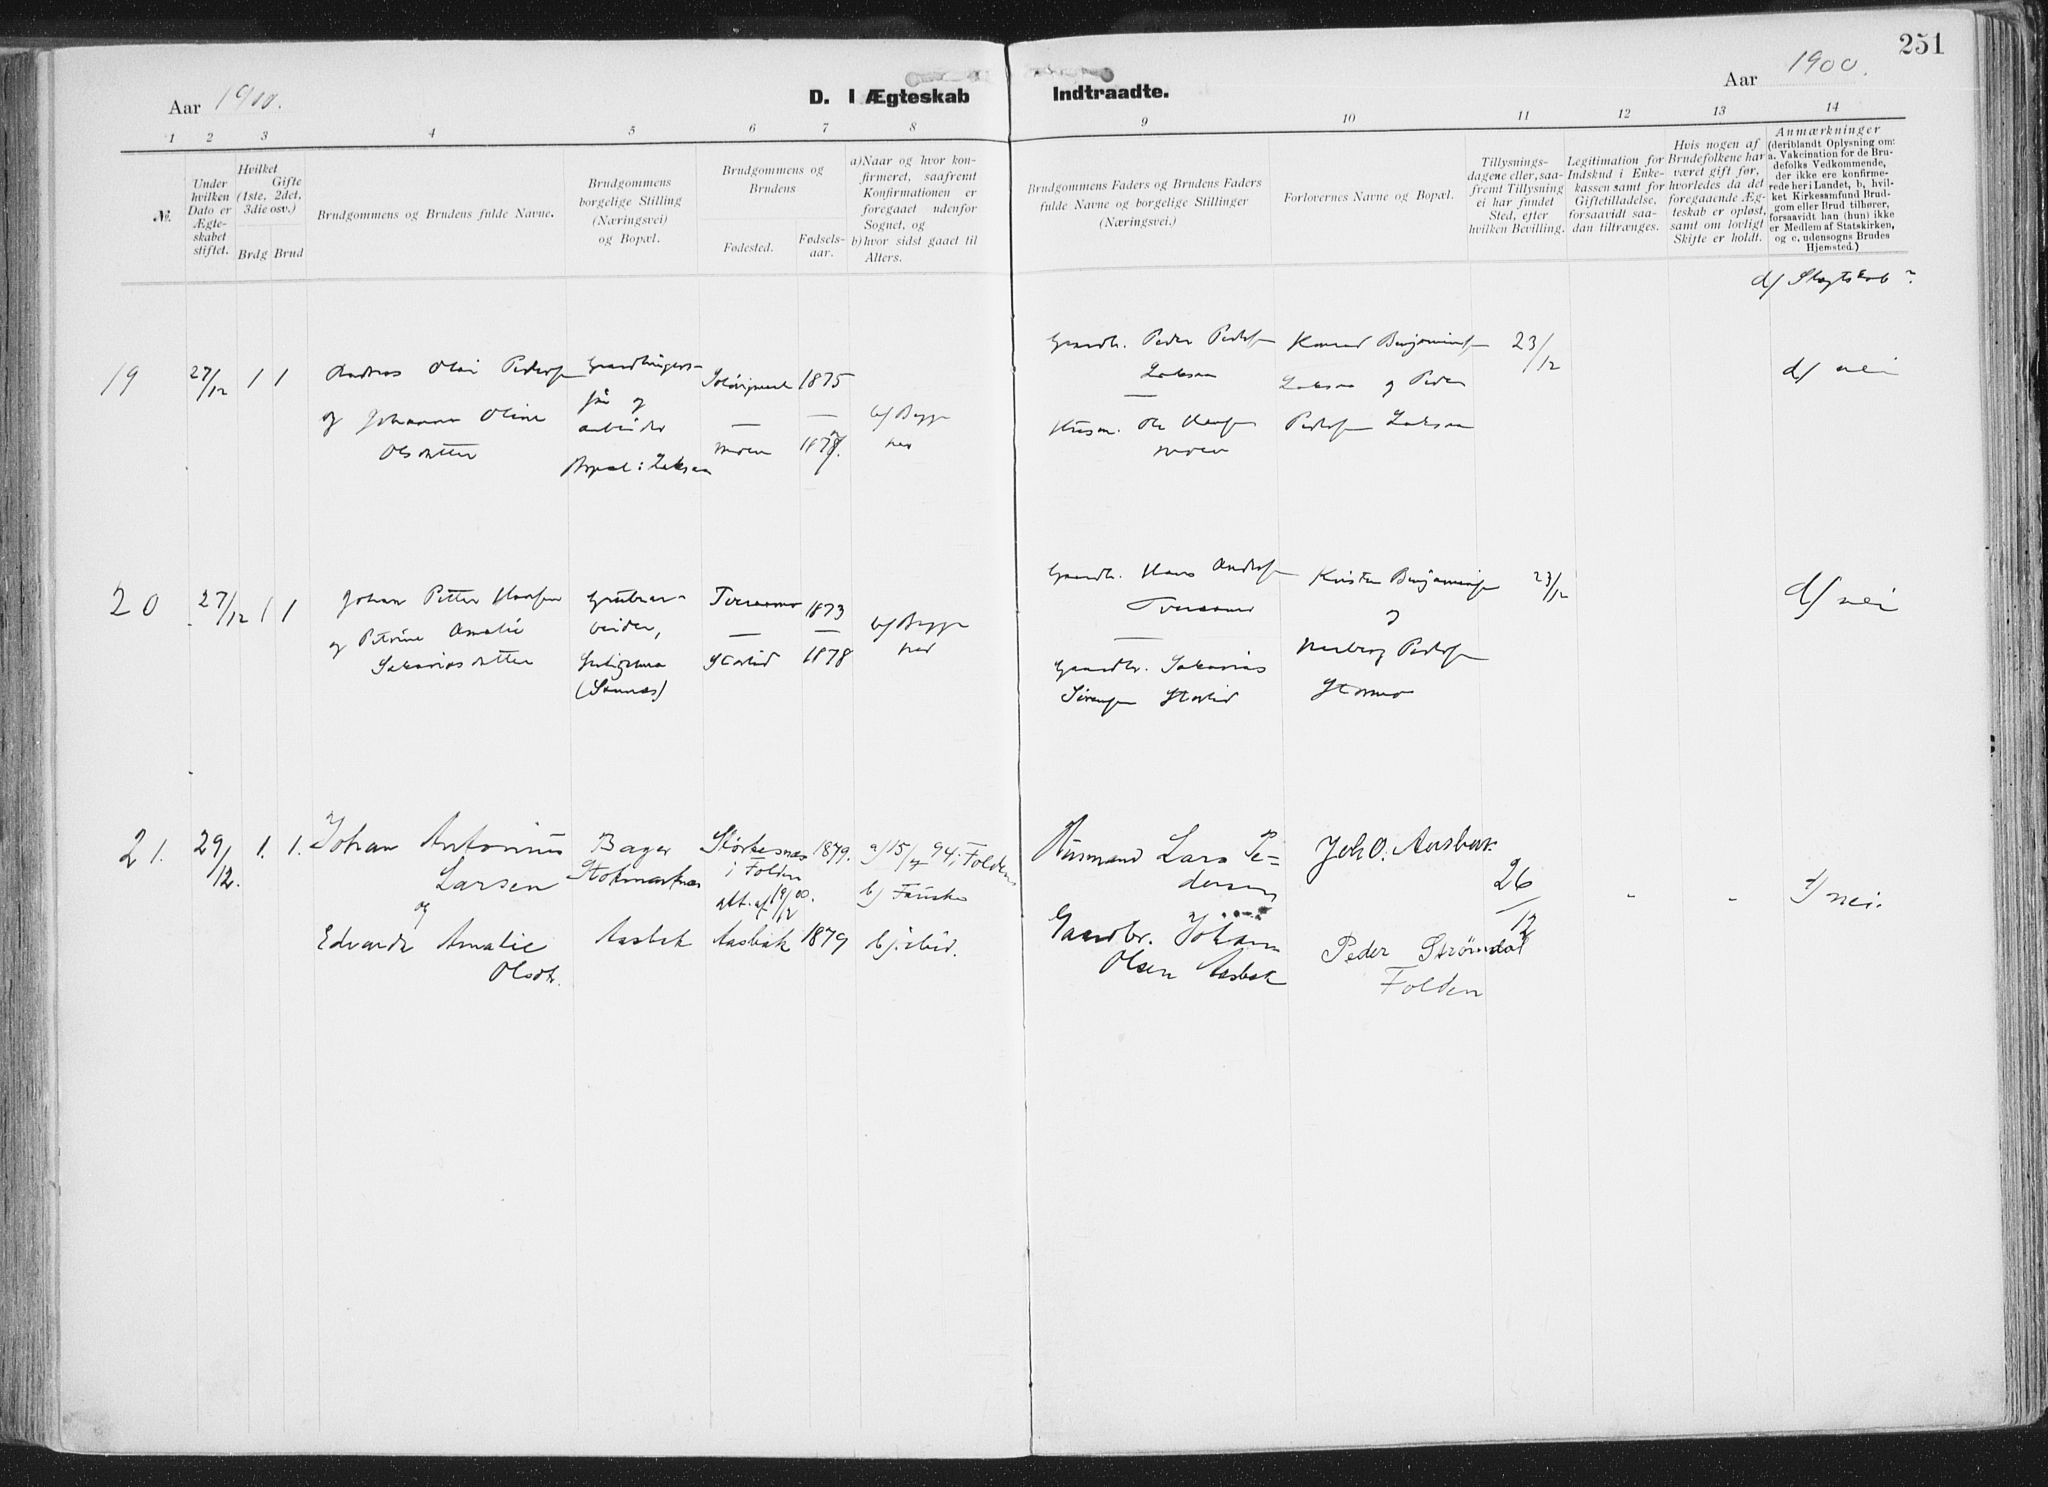 251
Aar 1900.
D. I Ægteskab Indtraadte.
Aar 1900.
1 2 3 4 5 6 7 8 9 10 11 12 13 14
№.
Under
hvilken
Dato er
Ægte-
skabet
stiftet.
Hvilket
Gifte
(1ste, 2det,
3die osv.)
Brdg Brud
Brudgommens og Brudens fulde Navne.
Brudgommens
borgelige Stilling
(Næringsvei)
og Bopæl.
Brudgommens og
Brudens
Fødested.
Fødsels-
aar.
a) Naar og hvor kon-
firmeret, saafremt
Konfirmationen er
foregaaet udenfor
Sognet, og
b) hvor sidst gaaet til
Alters.
Brudgommens Faders og Brudens Faders
fulde Navne og borgelige Stillinger
(Næringsvei.)
Forlovernes Navne og Bopæl.
Tillysnings-
dagene eller, saa-
fremt Tillysning
ei har fundet
Sted, efter
hvilken Bevilling.
Legitimation for
Indskud i Enke-
kassen samt for
Giftetilladelse,
forsaavidt saa-
dan tiltrænges.
Hvis nogen af
Brudefolkene har
været gift før,
hvorledes da det
foregaaende Æg-
teskab er opløst,
samt om lovligt
Skifte er holdt.
Anmærkninger
(deriblandt Oplysning om:
a. Vakcination for de Bru-
defolks Vedkommende,
der ikke ere konfirme-
rede her i Landet, b, hvil-
ket Kirkesamfund Brud-
gom eller Brud tilhører,
forsaavidt han (hun) ikke
er Medlem af Statskirken,
og c, udensogns Brudes
Hjemsted.)
d/ Slægtskab?
19 27/12 1 1
Andreas Olai Pedersen
og Johanna Oline
Olsdatter
Gaardbrugers-
søn og
arbeider
Bopæl: Laksaa
1875
—
Moen 1878
b/ Begge
her
Gaardb. Peder Pedersen
Laksaa
—
Husm. Ole Hansen
Moen
Konrad Benjaminsen
Laksaa og Peder
Pedersen Laksaa
23/12
d/ nei
20 27/12 1 1
Johan Petter Hansen
og Petrine Amalie
Sakariasdatter
Grubear-
beider,
(Sannæs)
Tveraamo 1873
—
Storlid 1878
b/ Begge
her
Gaardb. Hans Andersen
Tveraamo
—
Gaardbr. Sakarias
Sørensen Storlid
Kristen Benjaminsen
og
Pedersen
Stormo
23/12
d/ nei
21. 29/12. 1. 1.
Johan Antonius
Larsen
og
Edvarda Amalie
Olsdtr.
Bager
Stokmarknæs
Aasbak
Størkesnæs
i Folden
att. af 19/12 00.
1879.
Aasbak 1879
a) 15/7 94 i Folden
b) Fauske
b) ibid.
Husmand Lars Pe-
dersen
Gaardbr. Johan
Olsen Aasbak
Joh O. Aasbak
Peder Strømdal
Folden
26/12
d/ nei.